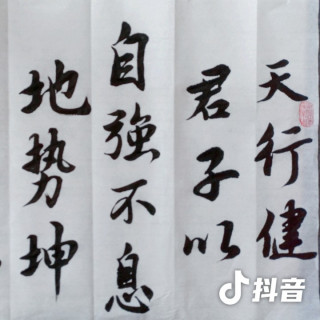 天行健
君子以
自强不息
地势坤
抖音